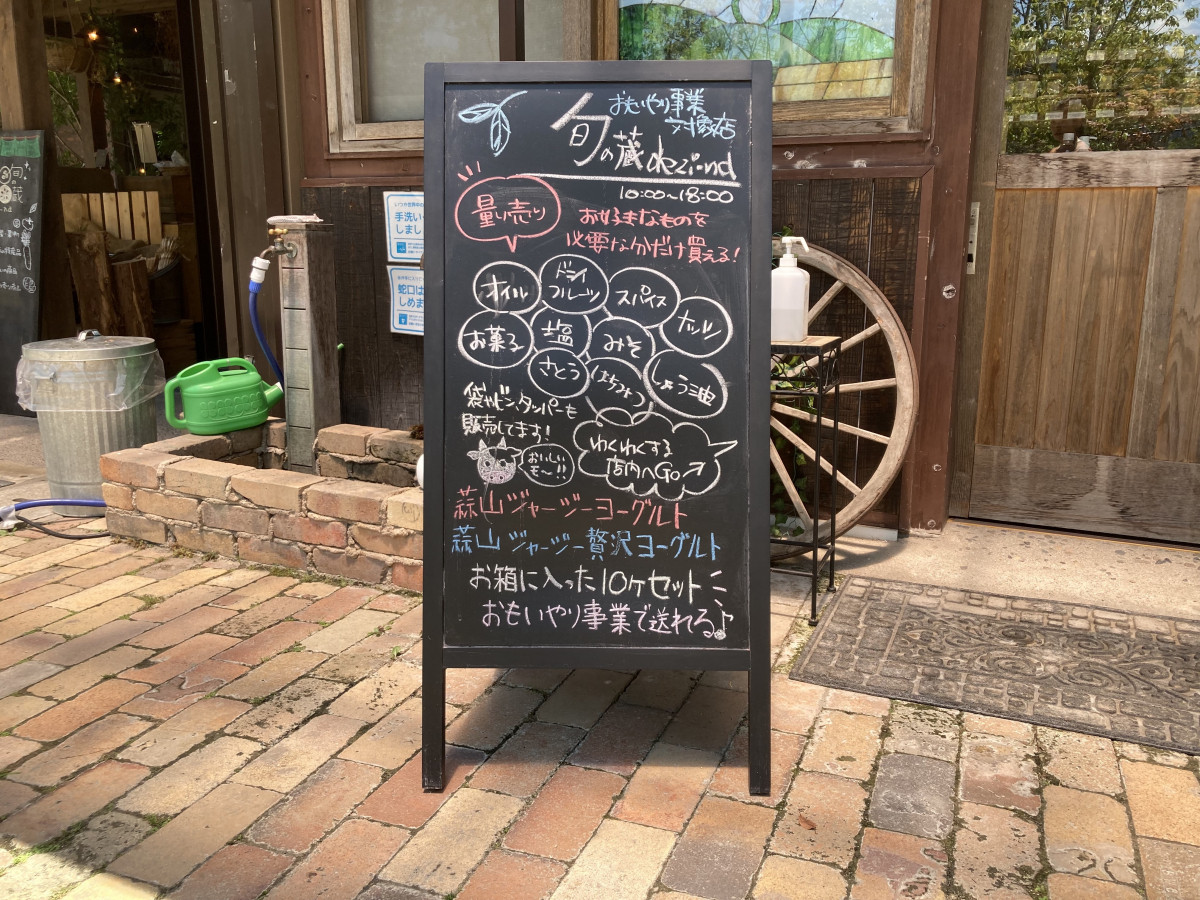 おもいやり事業
対象店
旬の蔵 dezi-nd
10:00～18:00
量り売り
お好きなものを
必要なぶだけ買える!
オイル
ドライ
フルーツ
スパイス
ナッツ
お菓子
塩
みそ
さとう
はちみつ
しょう油
袋やビン、タンパーも
販売してます!
おいしい
モ～!!
わくわくする
店内へGo↗
蒜山ジャージーヨーグルト
蒜山ジャージー贅沢ヨーグルト
お箱に入った10ヶセット
おもいやり事業で送れる♪
手洗い
しまし
蛇口は
しめま
旬